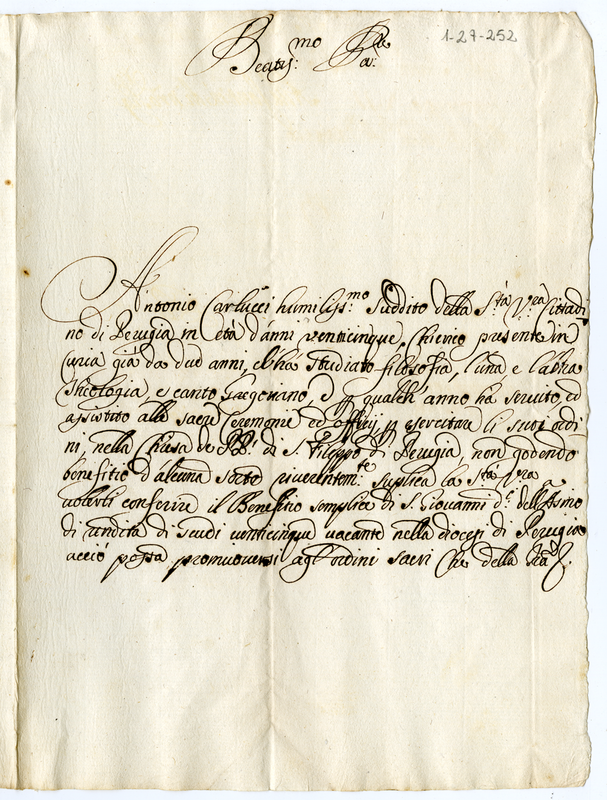 1-27-252
Beatis:mo Pre
Antonio Carlucci humiliss:mo Suddito della S:tà V:ra Cittadi
no di Perugia in età d'anni venticinque, Chierico presente in
Curia già da due anni, ch'hà studiato filosofia, l'una e l'altra
Theologia, e canto Gregoriano, e qualch'anno hà servito, ed
assistito alle sacre Ceremonie ed esercitare li suoi ordi
ni, nella Chiesa de PP: di S. Filippo di Perugia, non godendo
benefitio d'alcuna sorte riverentem:te suplica la S:tà V:ra
volerli conferire il Benefitio semplice di S. Giovanni d:o dell'Asino
di rendita di scudi venticinque vacante nella diocesi di Perugia
acciò possa promuoversi agl'ordini sacri Che della